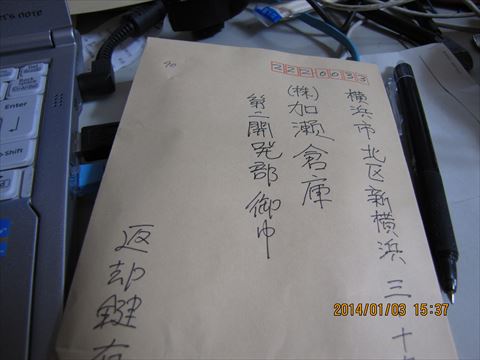 2220033
横浜市北区新横浜三十
(株)加瀬倉庫
第二開発部御中
返却鍵在
let's note
Enter
Shift
2014/01/03 15:37